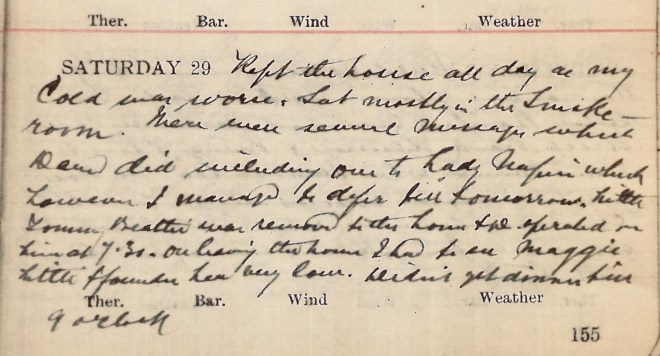 Ther. Bar. Wind Weather
SATURDAY 29 Kept the house all day as my
Cold was worse. Sat mostly in the Smoke-
room. There were several messages which
David did including one to Lady Napier which
however I managed to defer till tomorrow. Little
Tommy Beattie was removed to the home & we operated on
him at 7.30. On leaving the home I had to see Maggie
Little & found her very low. Didn't get dinner till
Ther. Bar. Wind Weather
9 o'clock
155